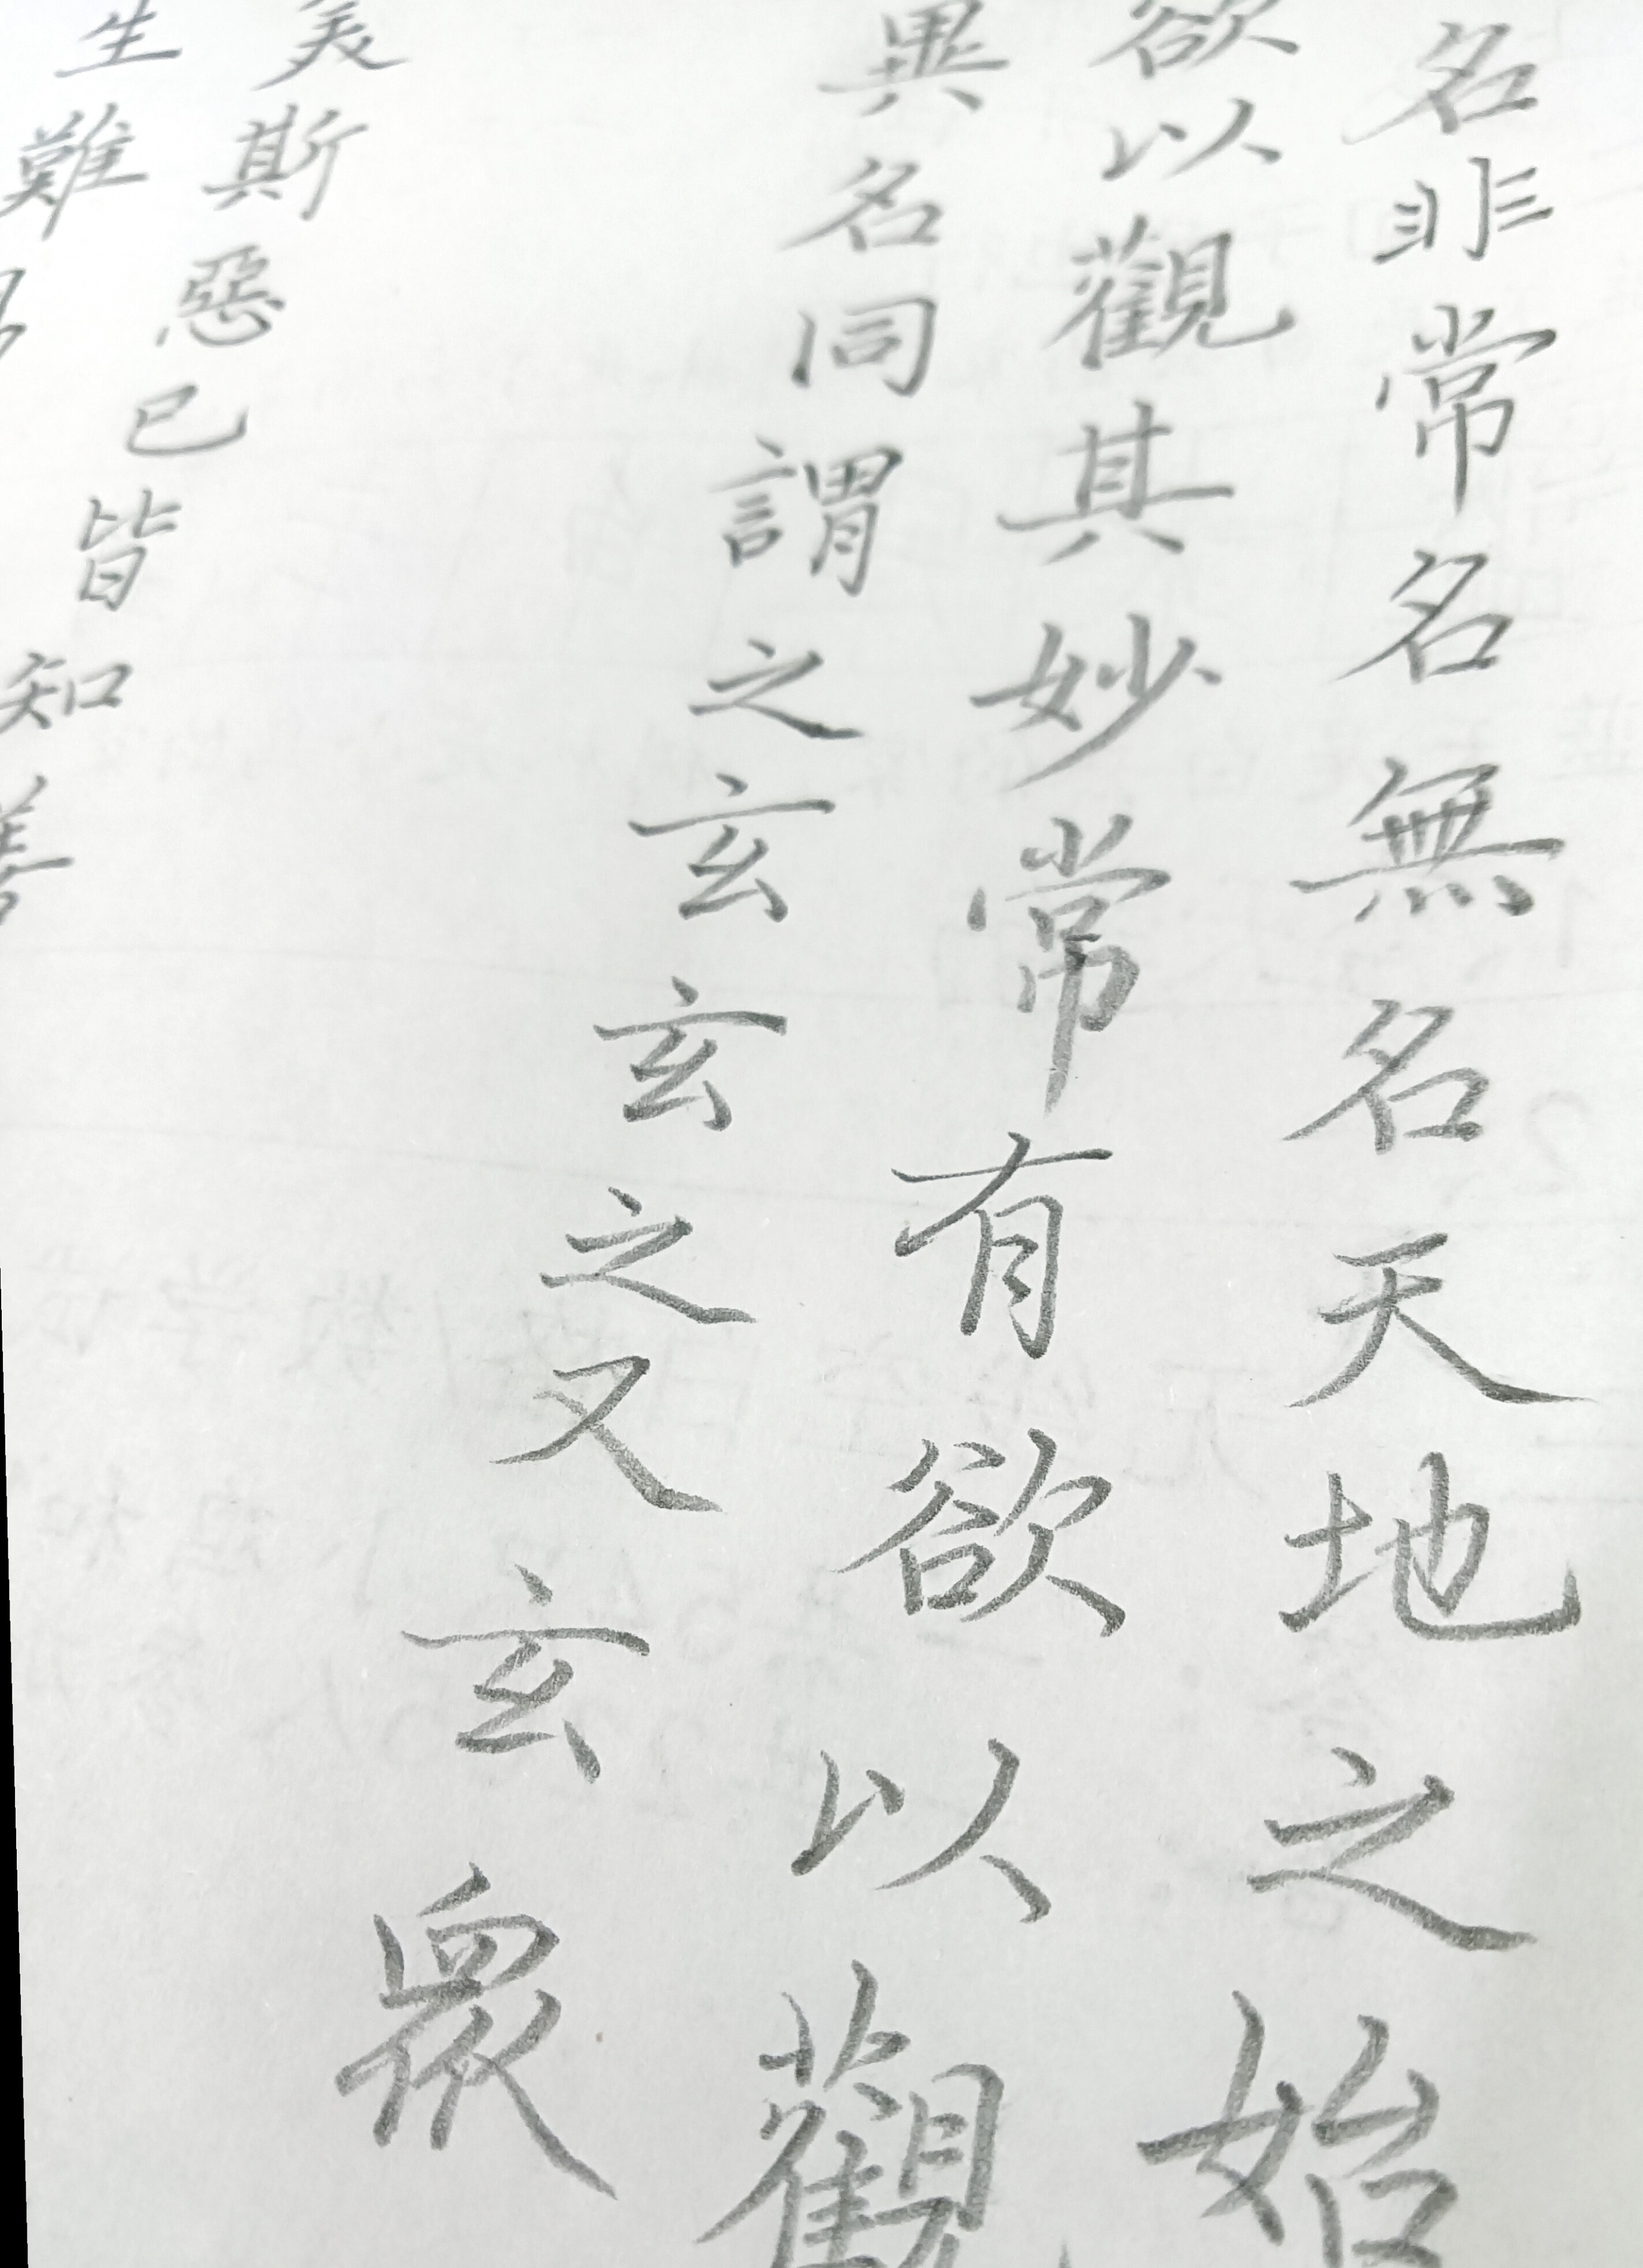 名非常名無名天地之始
欲以觀其妙常有欲以觀
異名同謂之玄玄之又玄眾
美斯惡已皆知善
生難